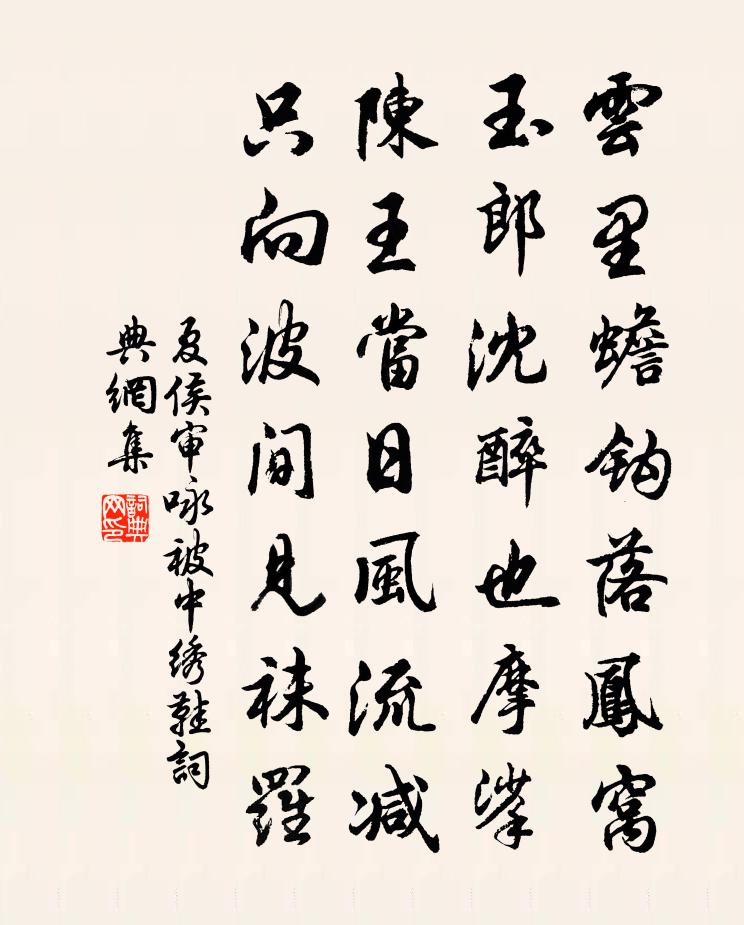 雲里蟾鈎落鳳窩
玉郎沈醉也摩挲
陳王當日風流减
只向波間見袜羅
夏侯审咏被中綉鞋詞
典網集
詞典网印